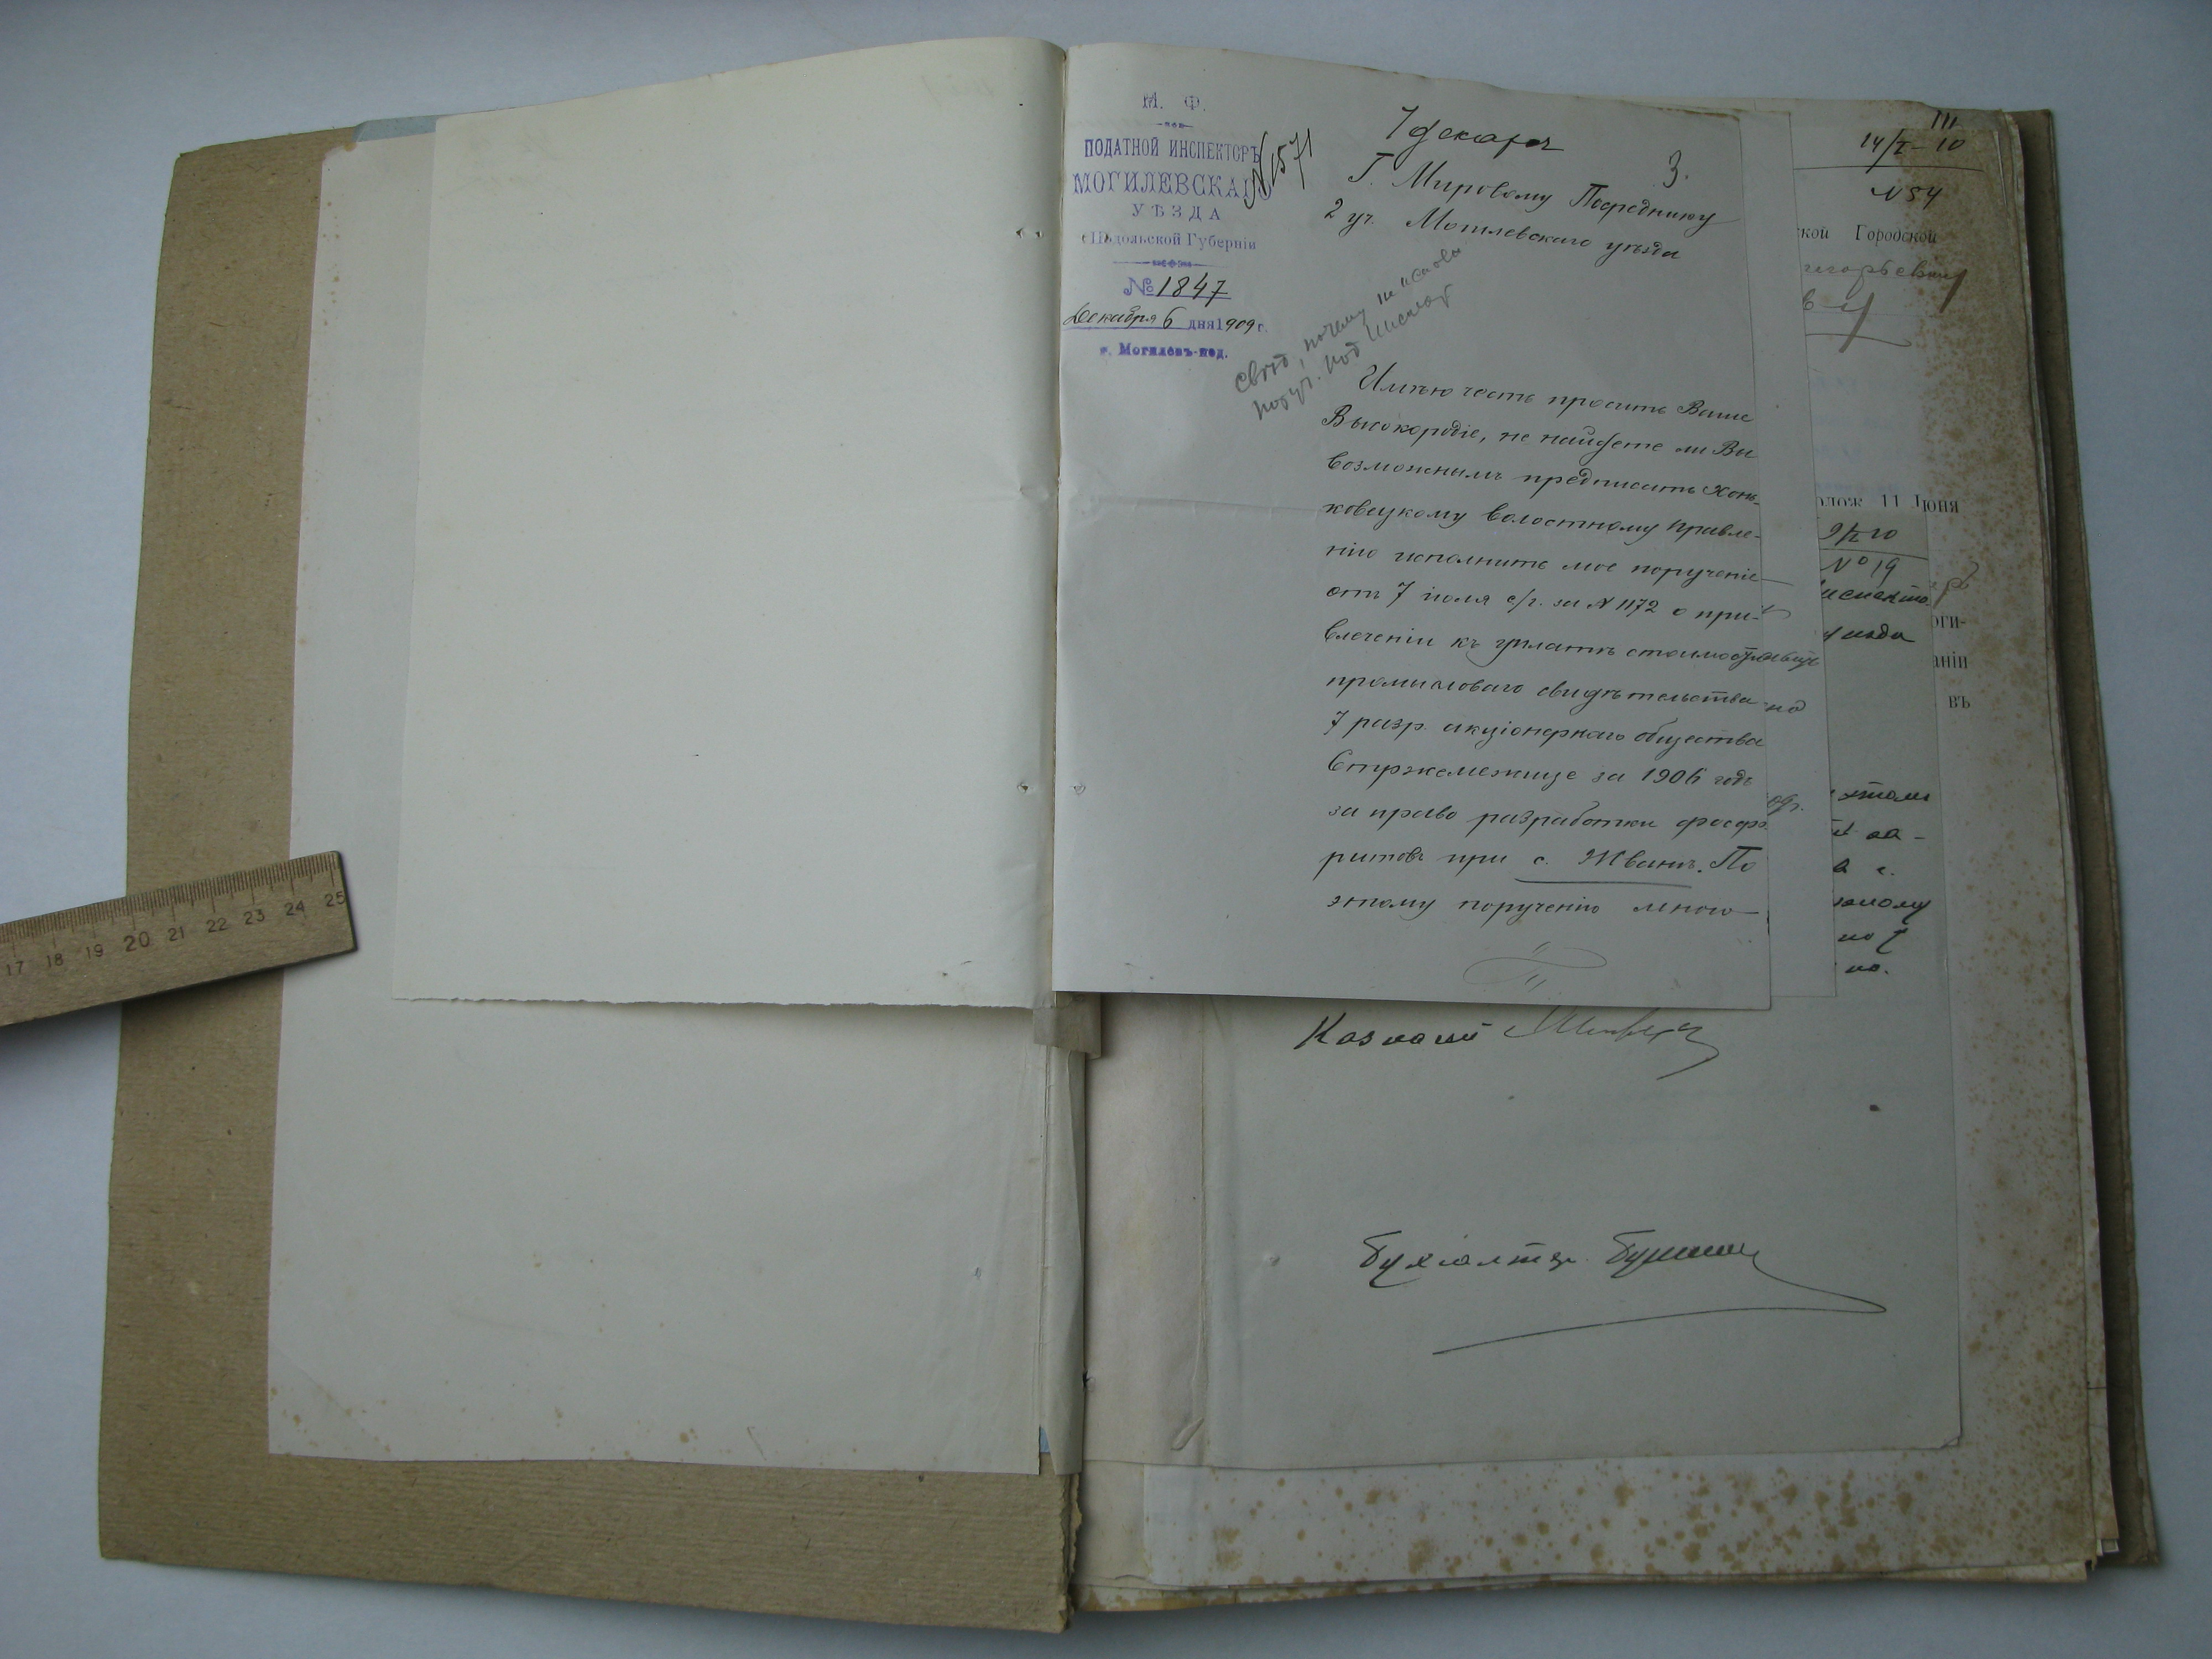 М. Ф.
ПОДАТНОЙ ИНСПЕКТОРЪ
МОГИЛЕВСКАГО
УѢЗДА
Подольской Губерніи
№ 1847
Декабря 6 дня 1909 г.
г. Могилевъ-под.
N 1571
7 декабря
3.
Г. Мировому Посреднику
2 уч. Могилевскаго уѣзда
почему
Имѣю честь просить Ваше
Высокородіе, не найдете ли Вы
возможнымъ предписать Хонь-
ковецкому волостному Правле-
нію исполнить мое порученіе
отъ 7 іюля с/г. за N 1172 о при-
влеченіи къ уплатѣ стоимости
промысловаго свидѣтельства
7 разр. акціонернаго общества
Стржемежице за 1906 годъ
за право разработки фосфо
ритовъ при с. Жванъ. По
этому порученію мною
III
14/I – 10
N 54
кой Городской
в
олож. 11 Іюня
9/I 10
N° 19
уѣзда
оги-
аніи
въ
но
этомъ
за-
с.
но
но.
Казначей
Бухгалтеръ
17 18 19 20 21 22 23 24 25